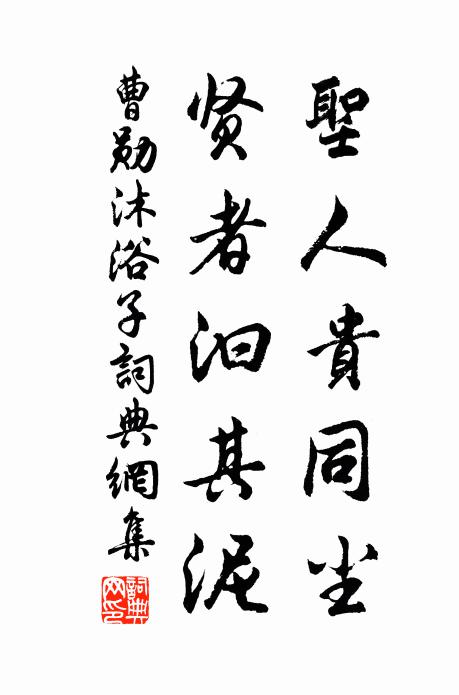 聖人貴同尘
贤者汩其泥
曹勛沐浴子詞典網集
詞典网印